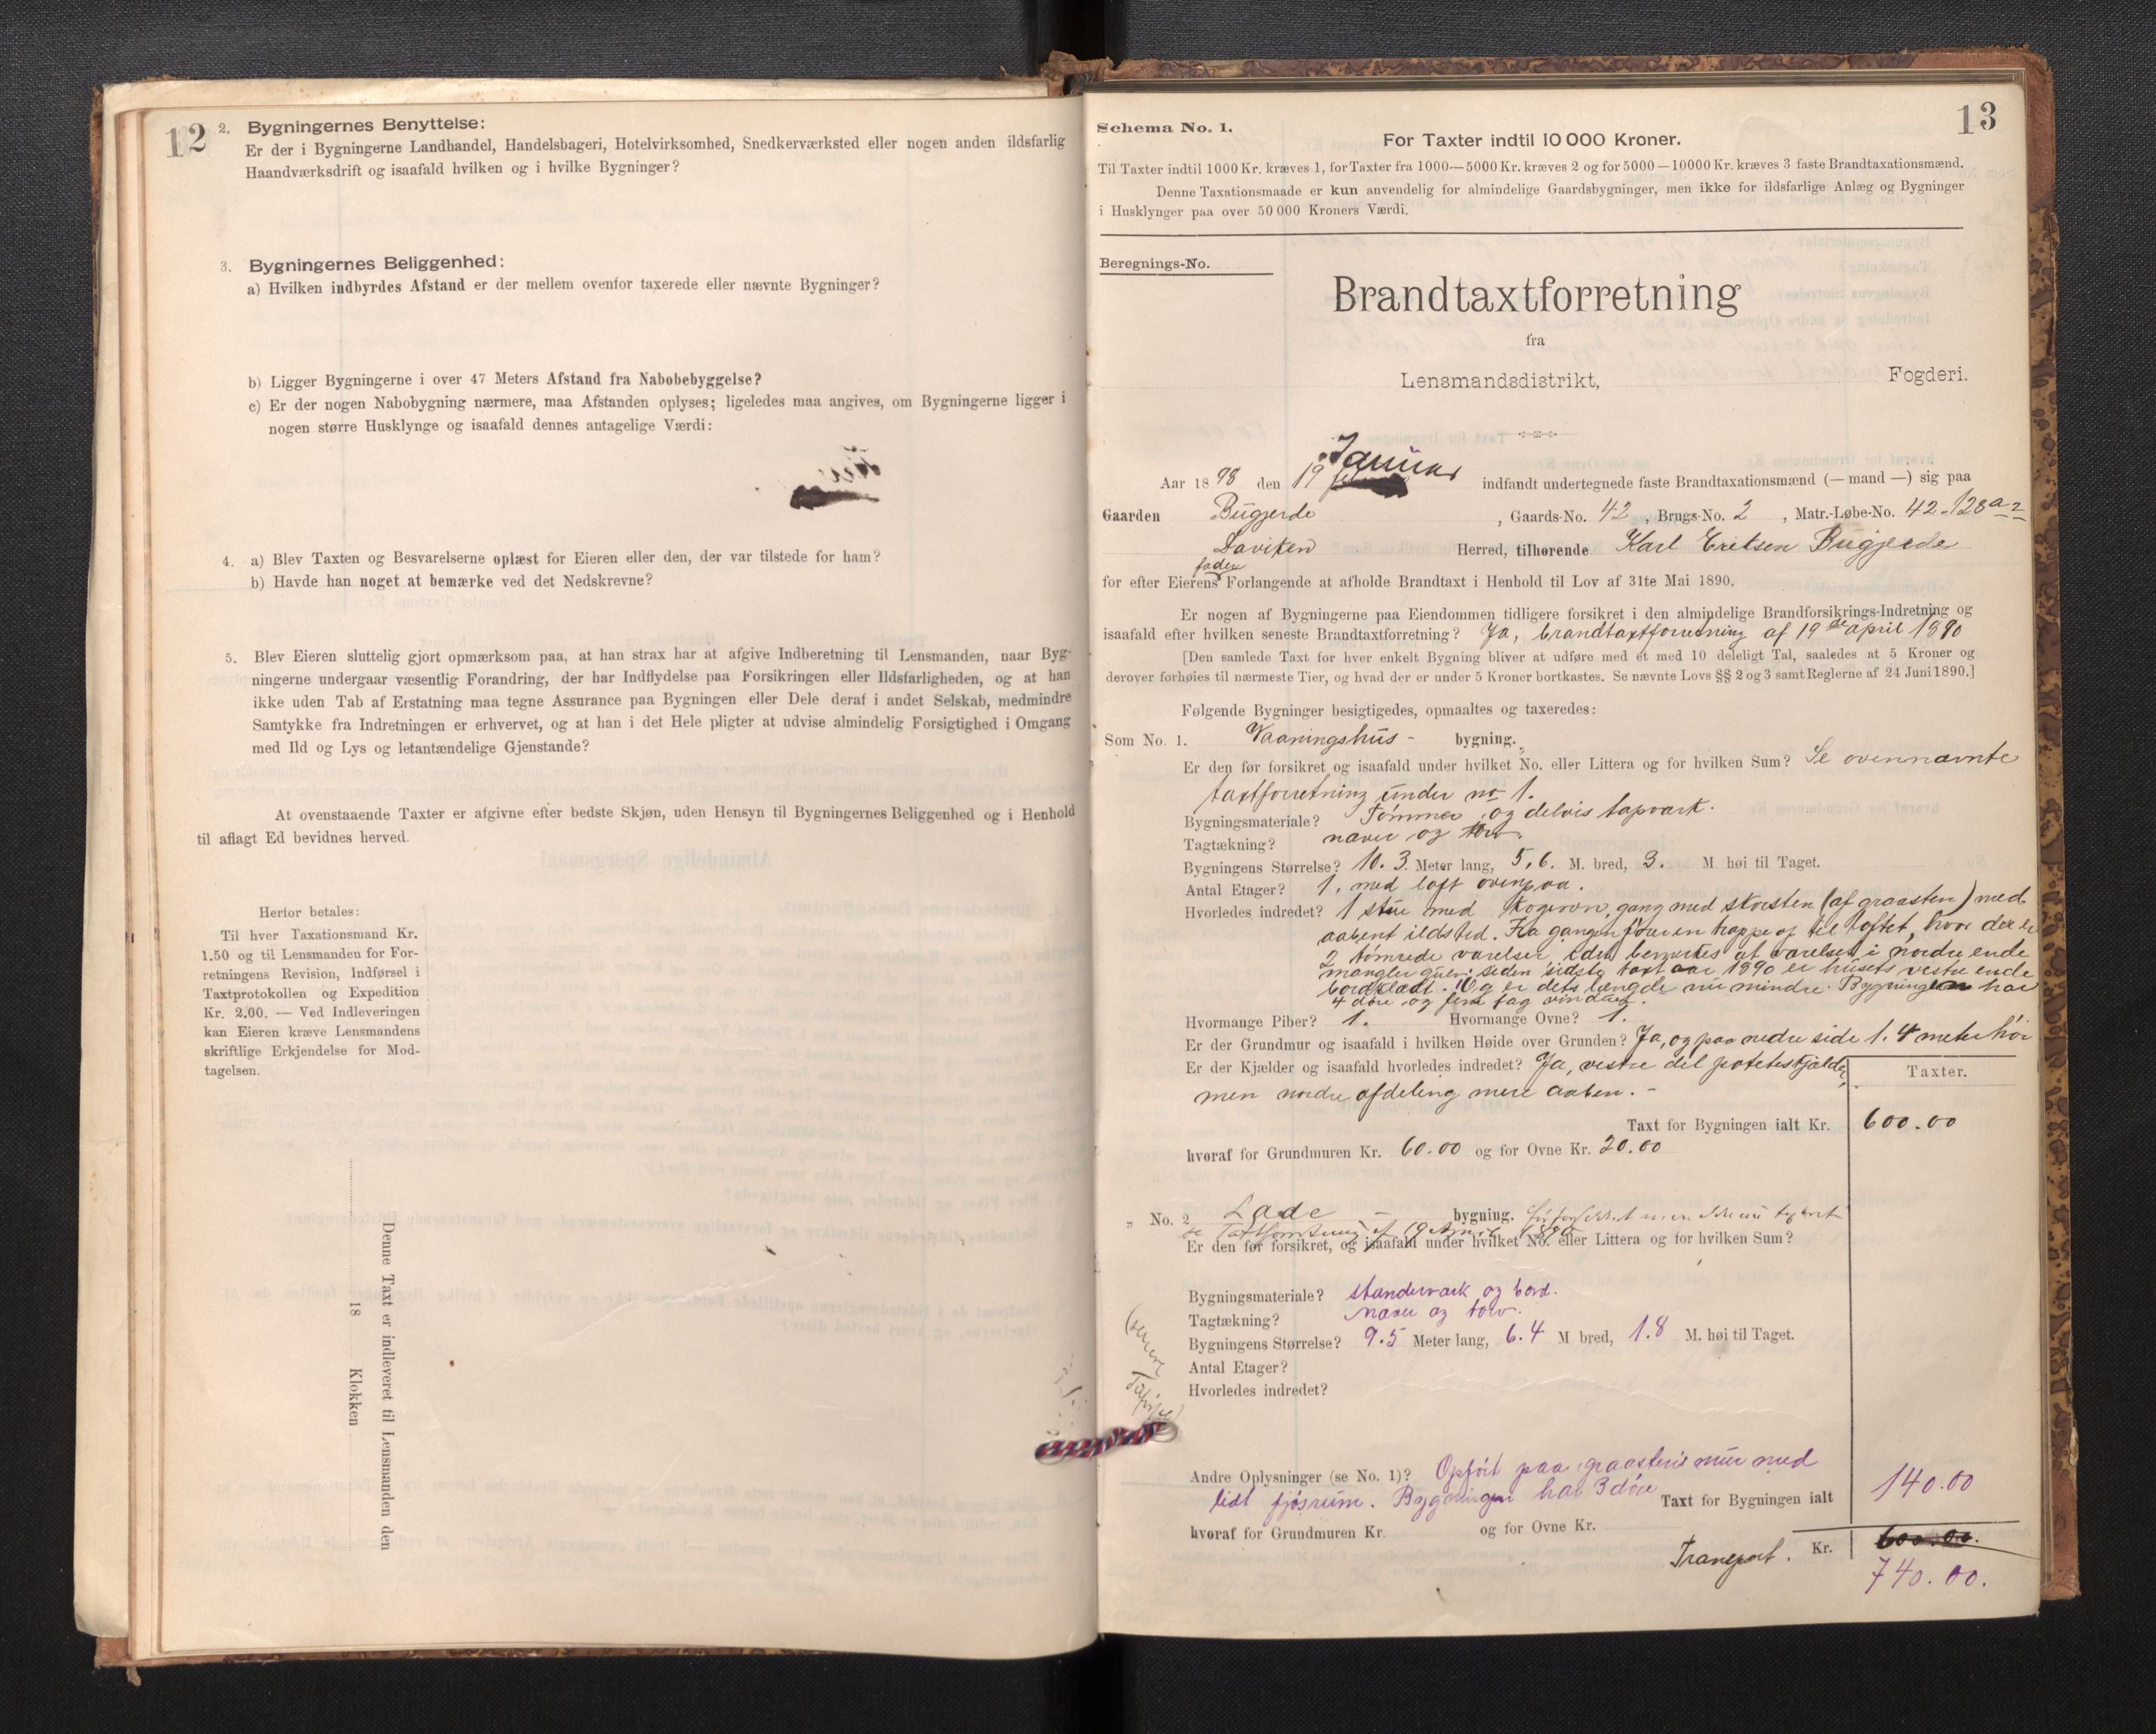 12
2. Bygningernes Benyttelse:
Er der i Bygningerne Landhandel, Handelsbageri, Hotelvirksomhed, Snedkerværksted eller nogen anden ildsfarlig
Haandværksdrift og isaafald hvilken og i hvilke Bygninger?
3. Bygningernes Beliggenhed:
a) Hvilken indbyrdes Afstand er der mellem ovenfor taxerede eller nævnte Bygninger?
b) Ligger Bygningerne i over 47 Meters Afstand fra Nabobebyggelse?
c) Er der nogen Nabobygning nærmere, maa Afstanden oplyses; ligeledes maa angives, om Bygningerne ligger i
nogen større Husklynge og isaafald dennes antagelige Værdi:
4. a) Blev Taxten og Besvarelserne oplæst for Eieren eller den, der var tilstede for ham?
b) Havde han noget at bemærke ved det Nedskrevne?
5. Blev Eieren sluttelig gjort opmærksom paa, at han strax har at afgive Indberetning til Lensmanden, naar Byg-
ningerne undergaar væsentlig Forandring, der har Indflydelse paa Forsikringen eller Ildsfarligheden, og at han
ikke uden Tab af Erstatning maa tegne Assurance paa Bygningen eller Dele deraf i andet Selskab, medmindre
Samtykke fra Indretningen er erhvervet, og at han i det Hele pligter at udvise almindelig Forsigtighed i Omgang
med Ild og Lys og letantændelige Gjenstande?
At ovenstaaende Taxter er afgivne efter bedste Skjøn, uden Hensyn til Bygningernes Beliggenhed og i Henhold
til aflagt Ed bevidnes herved.
Herfor betales:
Til hver Taxationsmand Kr.
1.50 og til Lensmanden for For-
retningens Revision, Indførsel i
Taxtprotokollen og Expedition
Kr. 2.00. — Ved Indleveringen
kan Eieren kræve Lensmandens
skriftlige Erkjendelse for Mod-
tagelsen.
Denne Taxt er indleveret til Lensmanden den
18 Klokken
13
Schema No. 1.
For Taxter indtil 10 000 Kroner.
Til Taxter indtil 1000 Kr. kræves 1, for Taxter fra 1000—5000 Kr. kræves 2 og for 5000—10000 Kr. kræves 3 faste Brandtaxationsmænd.
Denne Taxationsmaade er kun anvendelig for almindelige Gaardsbygninger, men ikke for ildsfarlige Anlæg og Bygninger
i Husklynger paa over 50 000 Kroners Værdi.
Beregnings-No.
Brandtaxtforretning
fra
Lensmandsdistrikt, Fogderi.
Aar 1898 den 19 Januar indfandt undertegnede faste Brandtaxationsmænd (— mand —) sig paa
Gaarden Bugjerde, Gaards-No. 42, Brugs-No. 2, Matr.-Løbe-No. 42. 128 a 2
Daviken Herred, tilhørende Karl Eriksen Bugjerde
fader
for efter Eierens Forlangende at afholde Brandtaxt i Henhold til Lov af 31te Mai 1890.
Er nogen af Bygningerne paa Eiendommen tidligere forsikret i den almindelige Brandforsikrings-Indretning og
isaafald efter hvilken seneste Brandtaxtforretning? Ja, brandtaxtforretning af 19de april 1890
[Den samlede Taxt for hver enkelt Bygning bliver at udføre med et med 10 deleligt Tal, saaledes at 5 Kroner og
derover forhøies til nærmeste Tier, og hvad der er under 5 Kroner bortkastes. Se nævnte Lovs §§ 2 og 3 samt Reglerne af 24 Juni 1890.]
Følgende Bygninger besigtigedes, opmaaltes og taxeredes:
Som No. 1. Vaaningshus - bygning.
Er den før forsikret og isaafald under hvilket No. eller Littera og for hvilken Sum? Se ovennævnte
taxtforretning under no 1.
Bygningsmateriale? Tømmer og delvis lapværk.
Tagtækning? næver og torv.
Bygningens Størrelse? 10.3. Meter lang, 5.6. M. bred, 3. M høi til Taget.
Antal Etager? 1. med loft ovenpaa.
Hvorledes indredet? 1 stue med kogeovn, gang med skorsten (af graasten) med
aabent ildsted. Fra gangen fører en trappe op til loftet, hvor der er
2 tømrede værelser, idet bemærkes at værelset i nordre ende
mangler gulv; siden sidste taxt aar 1890 er husets vestre ende
bordklædt. Og er dets længde nu mindre. Bygningen har
4 døre og fem fag vinduer.
Hvormange Piber? 1. Hvormange Ovne? 1.
Er der Grundmur og isaafald i hvilken Høide over Grunden? Ja, og paa nedre side 1.4 meter høi
Er der Kjælder og isaafald hvorledes indredet? Ja, vestre del poteteskjælder,
men nordre afdeling mere aaben. -
Taxter.
Taxt for Bygningen ialt Kr. 600.00
hvoraf for Grundmuren Kr. 60.00 og for Ovne Kr. 20.00
" No. 2 Lade - bygning. før forsikret men ikke nu
se Taxtforretning af 19 April 1890
Er den før forsikret, og isaafald under hvilket No. eller Littera og for hvilken Sum?
Bygningsmateriale? standerværk og bord.
Tagtækning? næver og torv.
Bygningens Størrelse? 9.5 Meter lang, 6.4 M bred, 1.8 M. høi til Taget.
Antal Etager?
Hvorledes indredet?
Andre Oplysninger (se No. 1)? Opført paa graastens mur med
lidt fjøsrum. Bygningen har 3 døre Taxt for Bygningen ialt 140.00
hvoraf for Grundmuren Kr. og for Ovne Kr.
Transport. Kr. 600.00.
740.00.